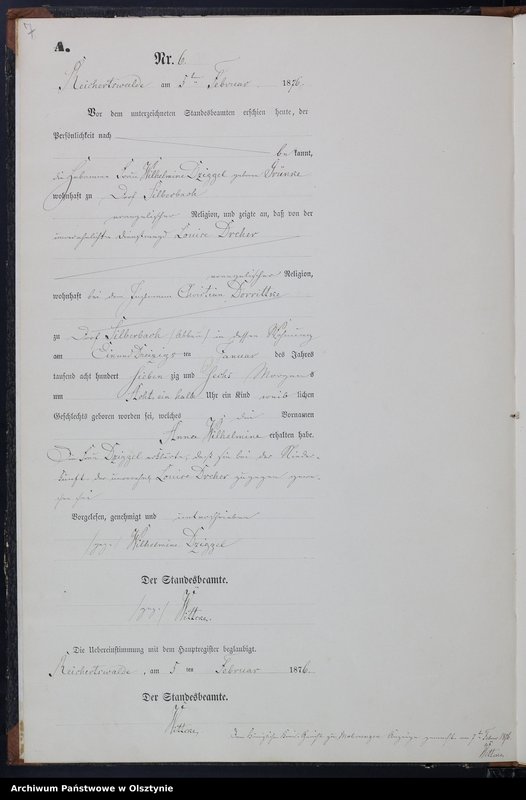 7
A.
Nr. 6.
Reichertswalde am 5ten Februar 1876.
Vor dem unterzeichneten Standesbeamten erschien heute, der
Persönlichkeit nach
be kannt,
die Hebamme Frau Wilhelmine Dziggel geborne Grünke
wohnhaft zu Dorf Silberbach
evangelischer Religion, und zeigte an, daß von der
unverehelichten Dienstmagd Louise Dreher
evangelischer Religion,
wohnhaft bei dem Christian Dorrittke
zu Dorf Silberbach in dessen Wohnung
am Ein und Dreizigs ten Januar des Jahres
tausend acht hundert sieben zig und sechs Morgens
um Acht ein halb Uhr ein Kind weib lichen
Geschlechts geboren worden sei, welches die Vornamen
Anna Wilhelmine erhalten habe.
Die Frau Dziggel erklärte, daß sie bei der Nieder-
kunft der Louise Dreher zugegen gewe-
sen sei
Vorgelesen, genehmigt und unterschrieben
/gez./ Wilhelmine Dziggel
Der Standesbeamte.
/gez./ Wittcke.
Die Uebereinstimmung mit dem Hauptregister beglaubigt.
Reichertswalde, am 5 ten Februar 1876.
Der Standesbeamte.
Wittcke.
Dem Königlichen Kreis-Gericht zu Mohrungen Anzeige gemacht am 7ten Febr 1876.
Wittcke.
Archiwum Państwowe w Olsztynie